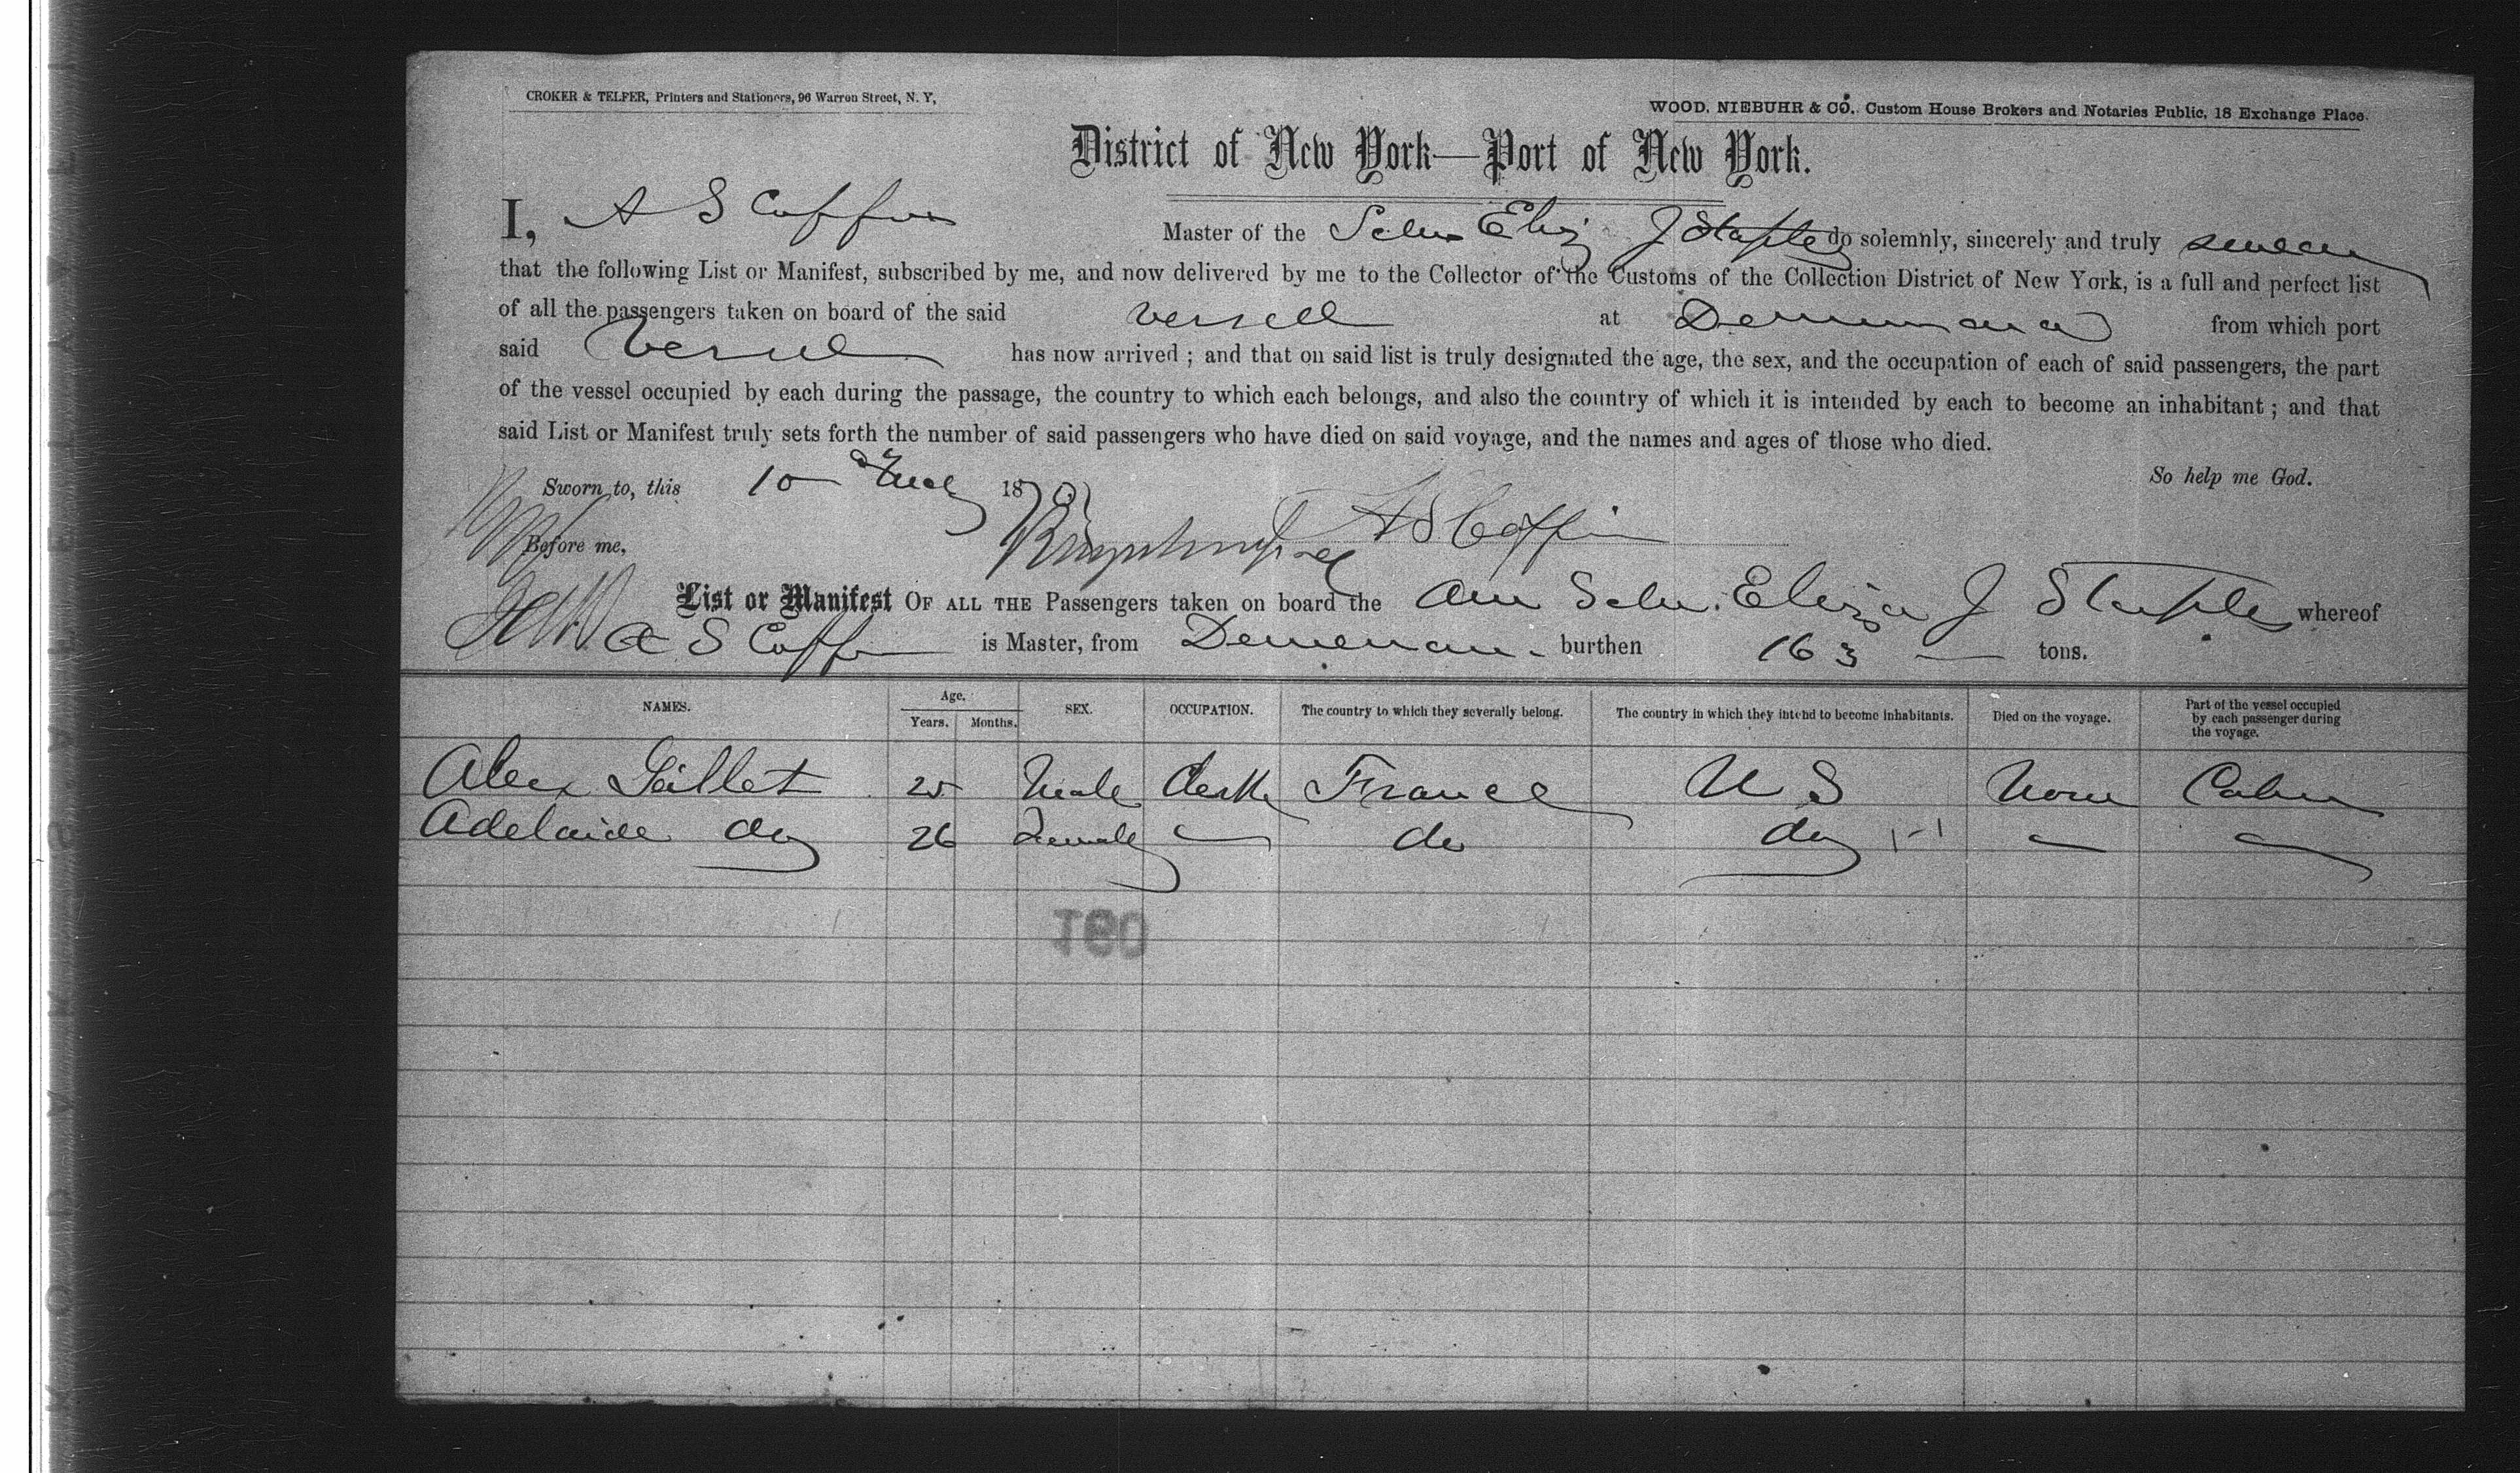 CROKER & TELFER, Printers and Stationers, 96 Warren Street, N. Y,
WOOD, NIEBUHR & CO., Custom House Brokers and Notaries Public, 18 Exchange Place.
District of New York—Port of New York.
I, A S Coffin Master of the Schr Eliz J Staples do solemnly, sincerely and truly swear
that the following List or Manifest, subscribed by me, and now delivered by me to the Collector of the Customs of the Collection District of New York, is a full and perfect list
of all the passengers taken on board of the said vessell at Demerara from which port
said Vessel has now arrived ; and that on said list is truly designated the age, the sex, and the occupation of each of said passengers, the part
of the vessel occupied by each during the passage, the country to which each belongs, and also the country of which it is intended by each to become an inhabitant ; and that
said List or Manifest truly sets forth the number of said passengers who have died on said voyage, and the names and ages of those who died.
So help me God.
Sworn to, this 10 18
Before me, A S Coffin
List or Manifest OF ALL THE Passengers taken on board the Am Schr. Eliza J Staples whereof
A S Coffin is Master, from Demerara burthen 163 tons.
NAMES. Age. Years. Months. SEX. OCCUPATION. The country to which they severally belong. The country in which they intend to become inhabitants. Died on the voyage. Part of the vessel occupied by each passenger during the voyage.
Alex Gaillet 25 Male Clerk France U S None Cabin
Adelaide do 26 Female — do do 1-1 — —